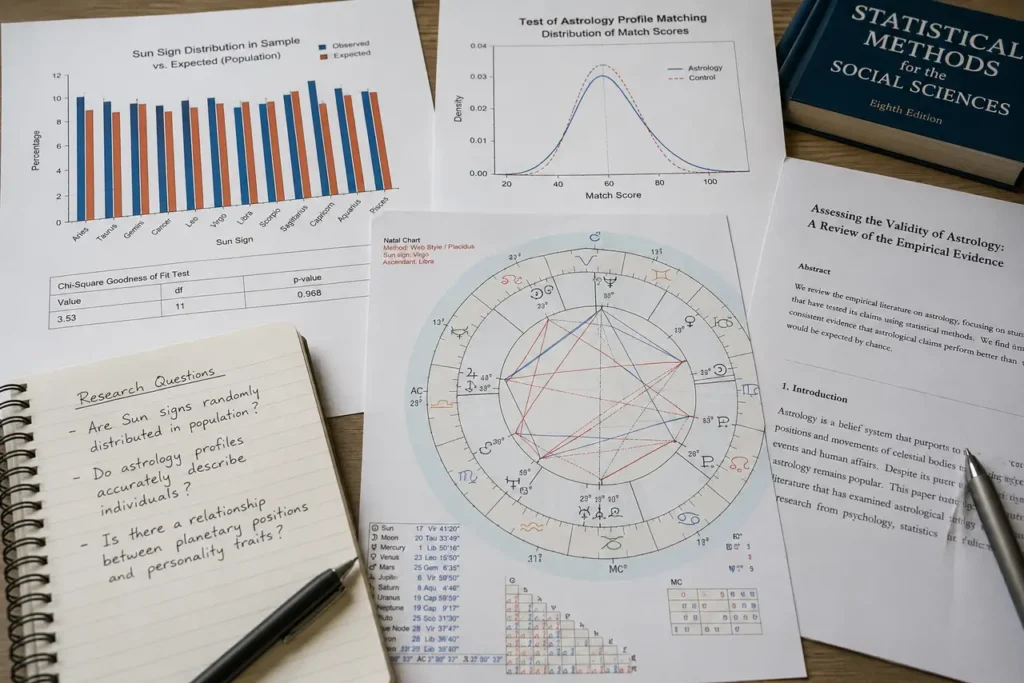 Sun Sign Distribution in Sample
vs. Expected (Population)
Observed
Expected
Percentage
12
10
8
6
4
2
0
Aries
Taurus
Gemini
Cancer
Leo
Virgo
Libra
Scorpio
Sagittarius
Capricorn
Aquarius
Pisces
Sun Sign
Chi-Square Goodness of Fit Test
Value df p-value
3.53 11 0.968
Test of Astrology Profile Matching
Distribution of Match Scores
Astrology
Control
Density
0.04
0.03
0.02
0.01
0.00
20 40 60 80 100
Match Score
STATISTICAL
METHODS
for the
SOCIAL SCIENCES
Eighth Edition
Research Questions
- Are Sun signs randomly
distributed in population?
- Do astrology profiles
accurately describe
individuals?
- Is there a relationship
between planetary positions
and personality traits?
Natal Chart
Method: Web Style / Placidus
Sun sign: Virgo
Ascendant: Libra
AC
MC
Sun 17 Vir 41'20"
Moon 20 Tau 33'49"
Mercury 1 Lib 50'16"
Venus 23 Leo 15'50"
Mars 25 Gem 6'35"
Jupite 6 Vir 59'50"
Saturn 8 Aqu 4'46"
Uranus 19 Cap 59'59"
Neptune 19 Cap 9'17"
25 Sco 31'30"
Node 28 Vir 37'47"
28 Lib 36'40"
MC
Assessing the Validity of Astrology:
A Review of the Empirical Evidence
Abstract
We review the empirical literature on astrology, focusing on
that have tested its claims using statistical methods. We find
consistent evidence that astrological claims perform better than
would be expected by chance.
1. Introduction
Astrology is a belief system that purports to
positions and movements of celestial bodies
events and human affairs. Despite its
astrology remains popular. This paper
literature that has examined astrological
research from psychology, statistics